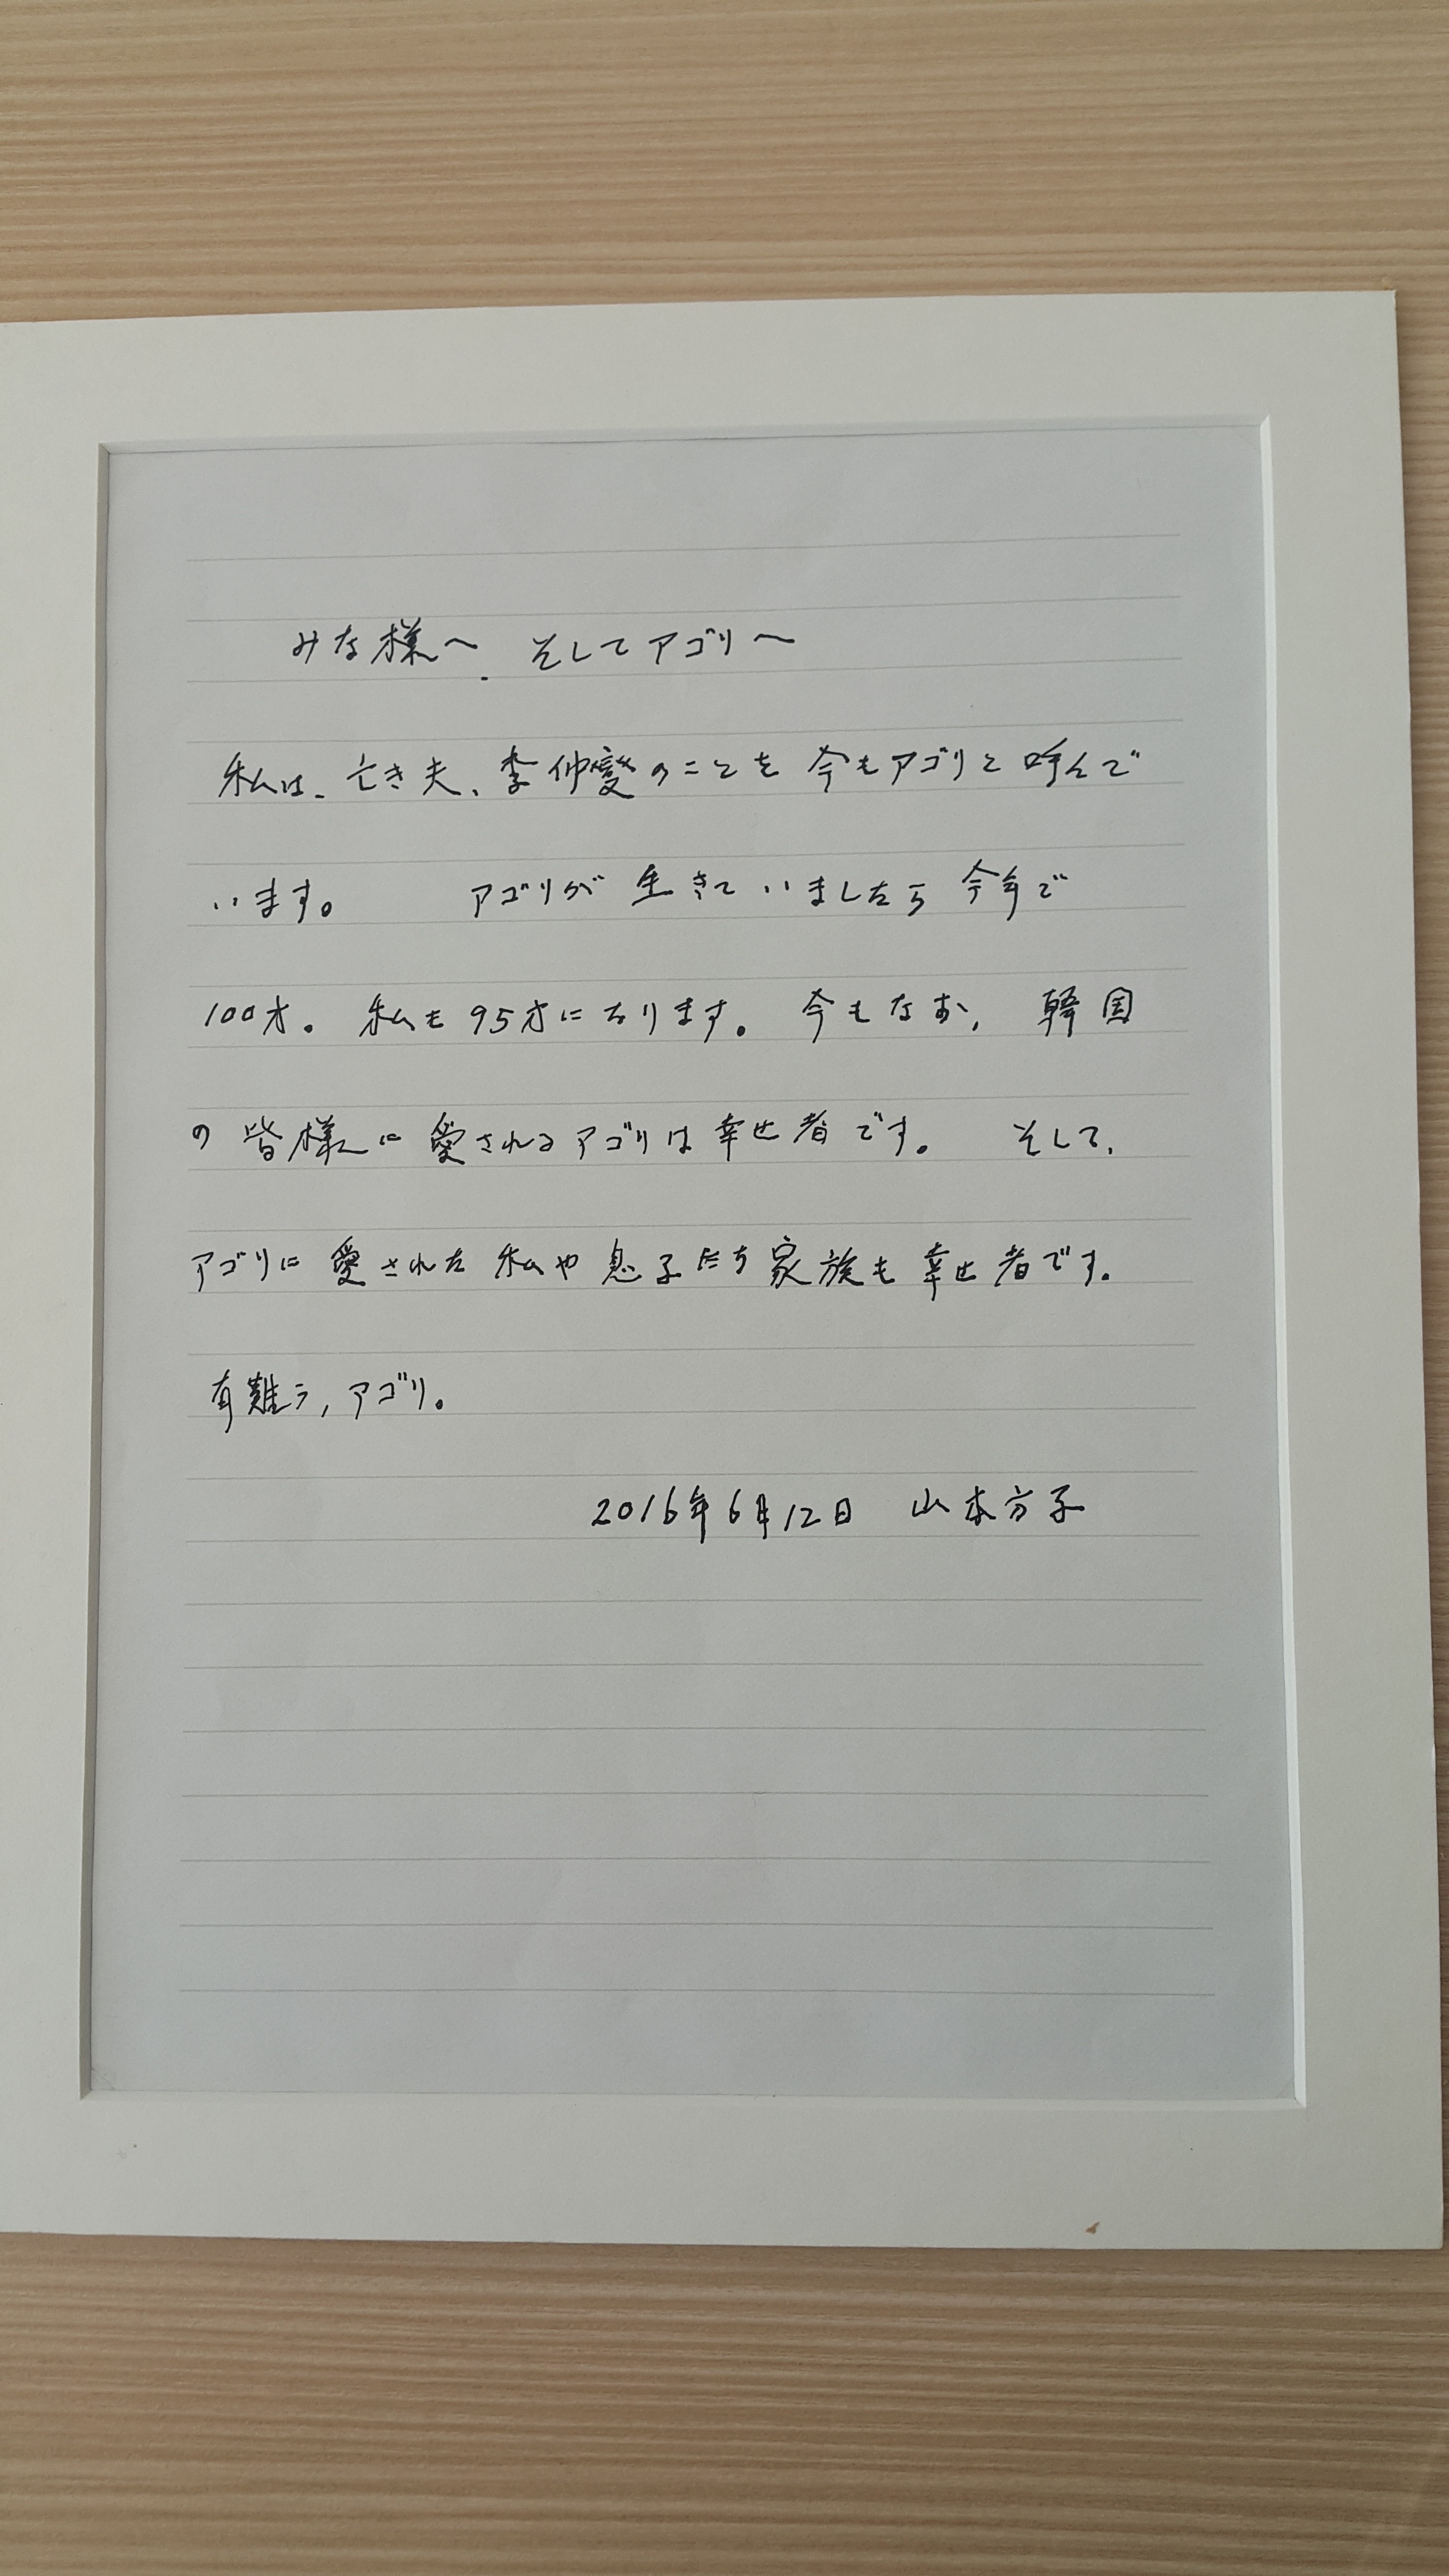 みな様へ、そしてアゴリへ
私は、亡き夫、李仲燮のことを今もアゴリと呼んで
います。 アゴリが生きていましたら今年で
100才。私も95才になります。今もなお、韓国
の皆様に愛されるアゴリは幸せ者です。 そして、
アゴリに愛された私や息子たち家族も幸せ者です。
有難う、アゴリ。
2016年6月12日 山本方子